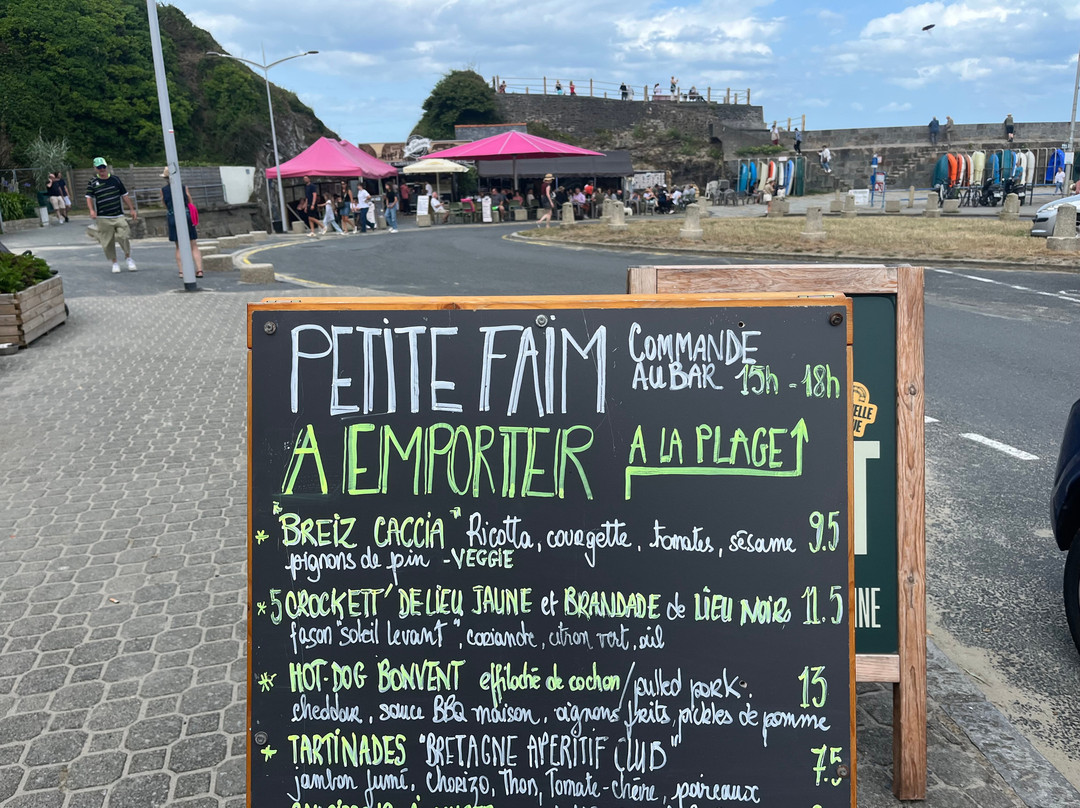 PETITE FAIM
COMMANDE
AU BAR 15h - 18h
A EMPORTER
A LA PLAGE
* "BREIZ CACCIA" Ricotta, courgette, tomates, sésame 9.5
pignons de pin - VEGGIE
* 5 CROCKETT' DE LIEU JAUNE et BRANDADE de LIEU NOIR 11.5
façon "soleil levant", coriande, citron vert, aïl
* HOT-DOG BONVENT effiloché de cochon / pulled pork. 13
cheddar, sauce BBQ maison, oignons frits, pickles de pomme
* TARTINADES "BRETAGNE APERITIF CLUB" 7.5
jambon fumé, Chorizo, Thon, Tomate-chèvre, poireaux